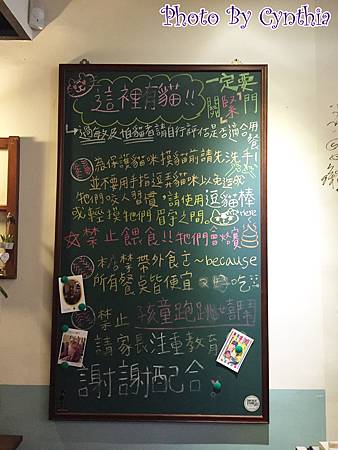 Photo By Cynthia
這裡有貓!! 一定要關緊門
過敏及怕貓者請自行評估是否適合用餐
為保護貓咪摸貓前請先洗手!
並不要用手指逗弄貓咪以免造成
牠們咬人習慣,請使用逗貓棒
或輕揉牠們眉宇之間 here
禁止餵食!!牠們會
本店禁帶外食~because
所有餐桌皆便宜又好吃
禁止孩童跑跳嬉鬧
請家長注重教育
謝謝配合